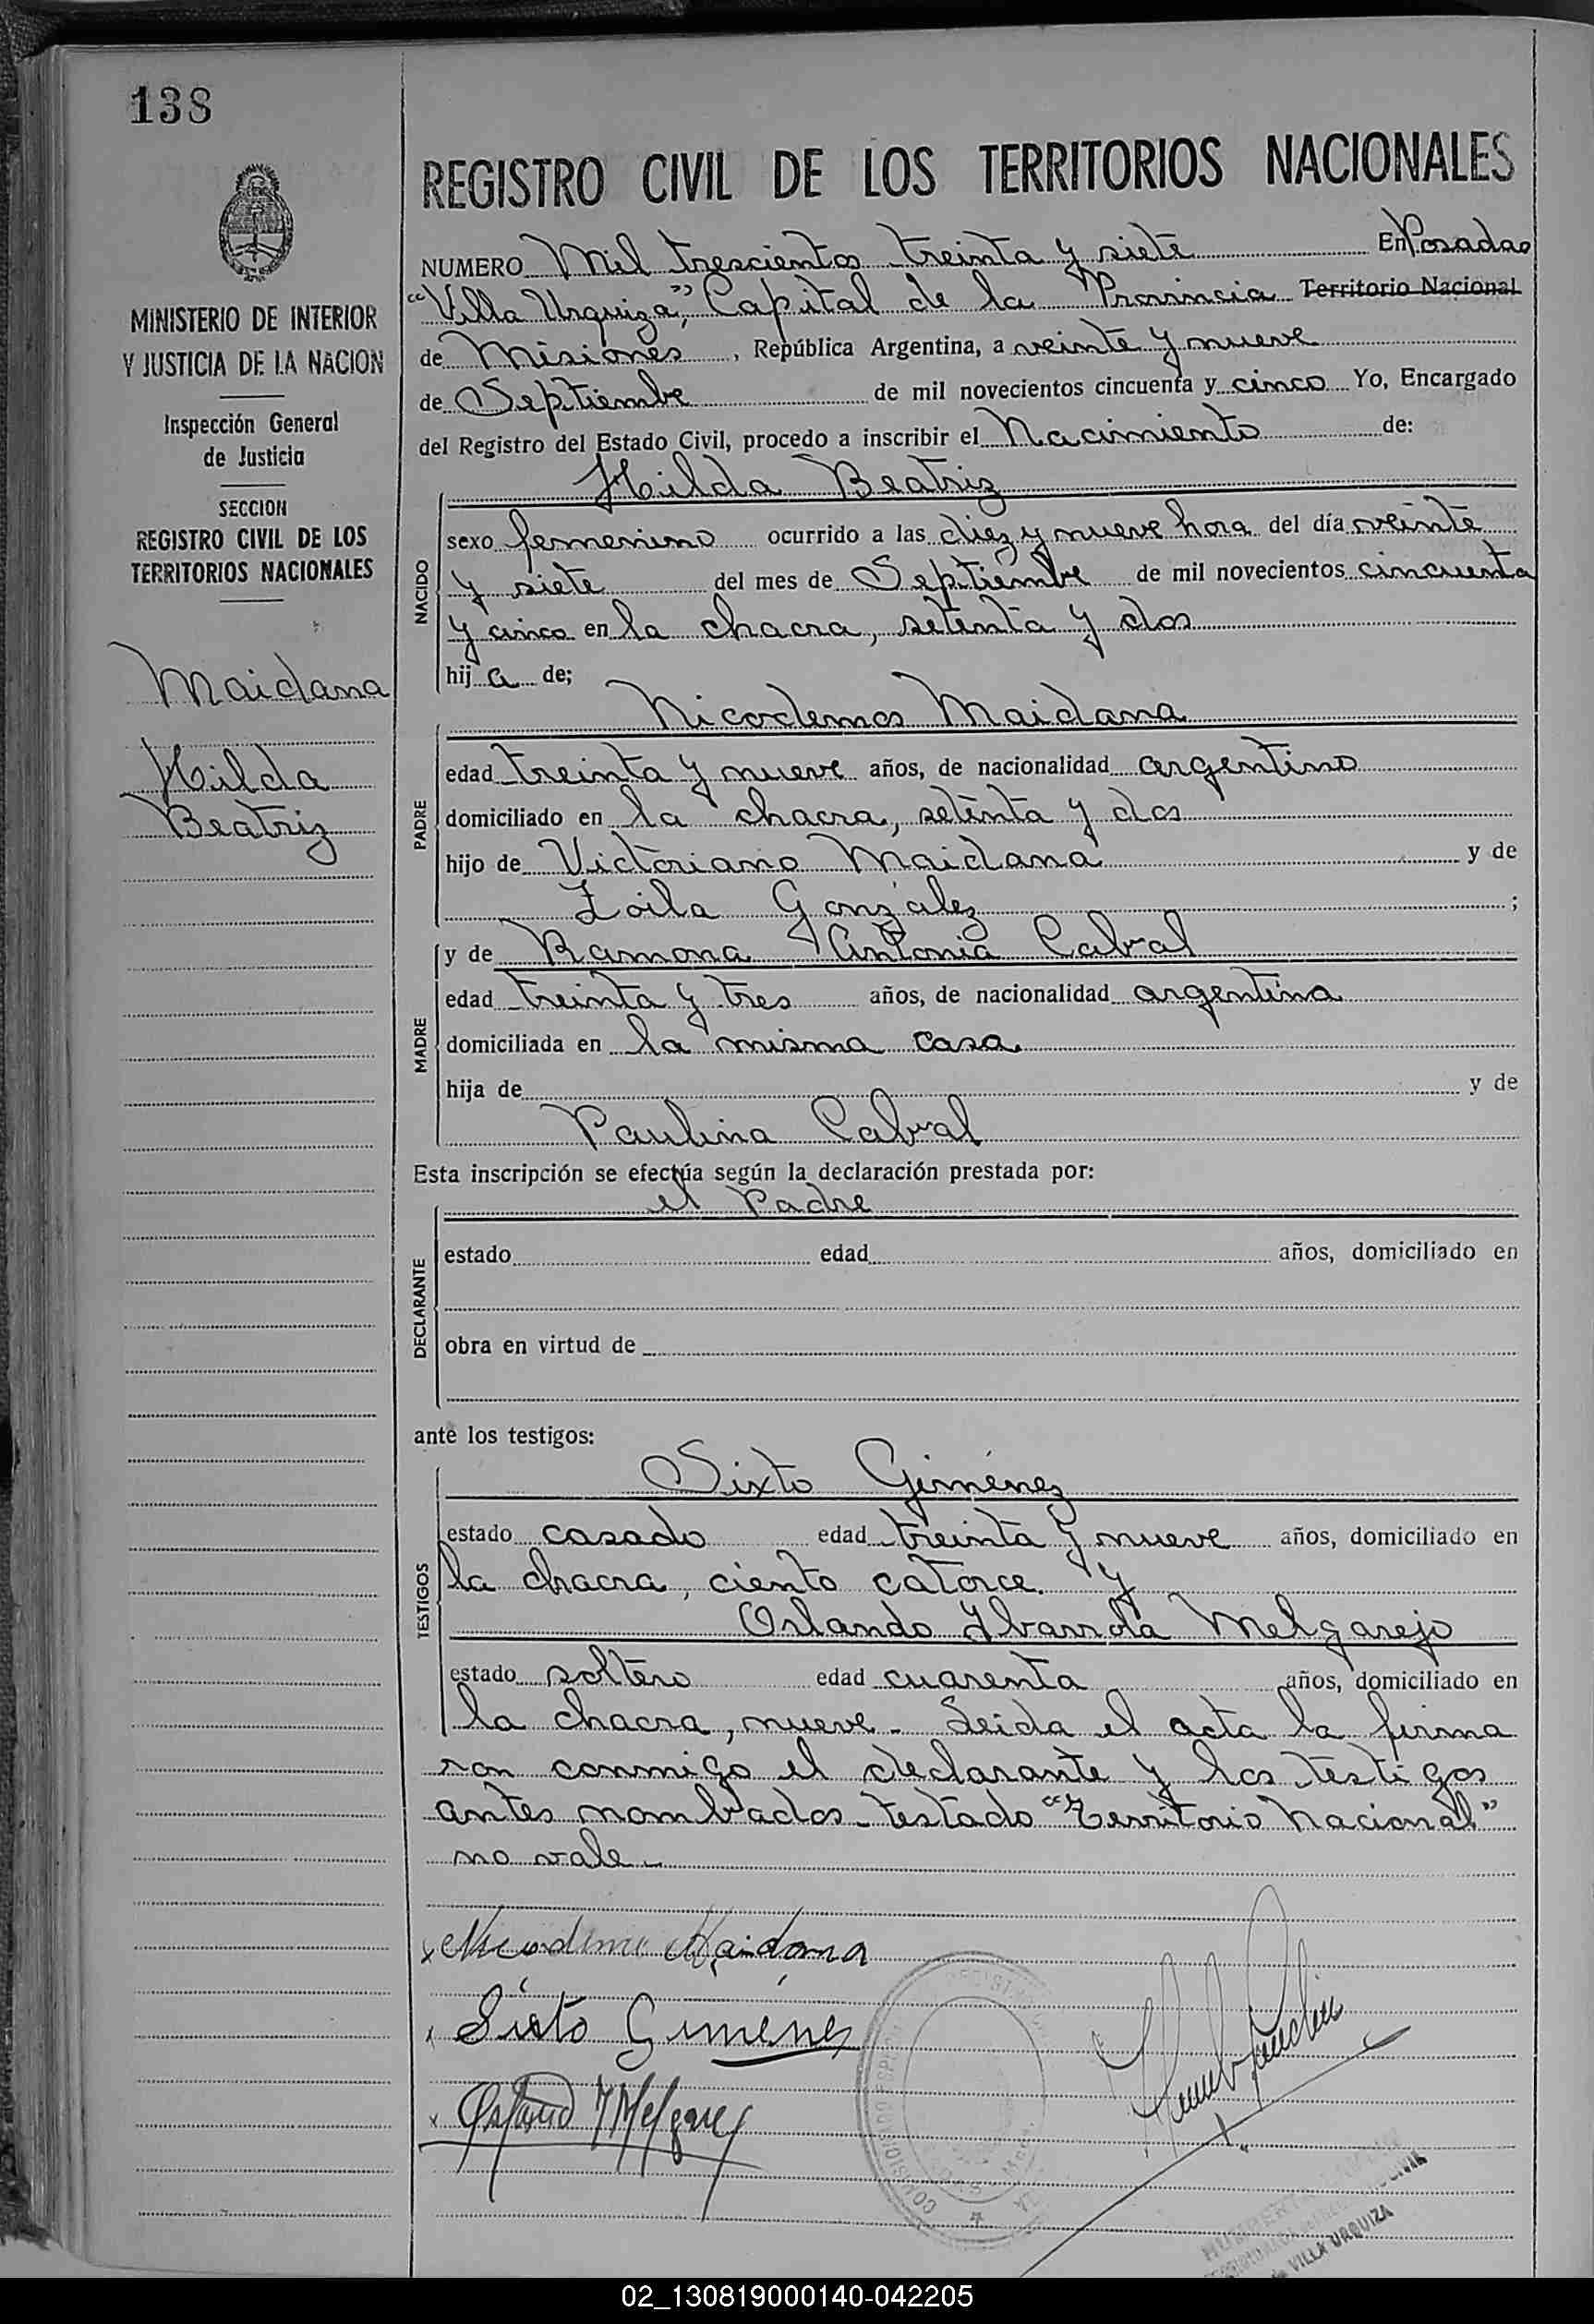 138
REGISTRO CIVIL DE LOS TERRITORIOS NACIONALES
MINISTERIO DE INTERIOR
Y JUSTICIA DE LA NACION
Inspección General
de Justicia
SECCION
REGISTRO CIVIL DE LOS
TERRITORIOS NACIONALES
Maidana
Hilda
Beatriz
NUMERO Mil trescientos treinta y siete En Posadas
"Villa Urquiza", Capital de la Provincia Territorio Nacional
de Misiones, República Argentina, a veinte y nueve
de Septiembre de mil novecientos cincuenta y cinco Yo, Encargado
del Registro del Estado Civil, procedo a inscribir el Nacimiento de:
NACIDO
Hilda Beatriz
sexo femenino ocurrido a las diez y nueve hora del día veinte
y siete del mes de Septiembre de mil novecientos cincuenta
y cinco en la chacra, setenta y dos
hija de;
PADRE
Nicodemos Maidana
edad treinta y nueve años, de nacionalidad argentino
domiciliado en la chacra, setenta y dos
hijo de Victoriano Maidana y de
Zoila González ;
MADRE
y de Ramona Antonia Cabral
edad treinta y tres años, de nacionalidad argentina
domiciliada en la misma casa
hija de y de
Paulina Cabral
Esta inscripción se efectúa según la declaración prestada por:
DECLARANTE
el Padre
estado edad años, domiciliado en
obra en virtud de
ante los testigos:
TESTIGOS
Sixto Giménez
estado casado edad treinta y nueve años, domiciliado en
la chacra, ciento catorce. y
Orlando Ybarrola Melgarejo
estado soltero edad cuarenta años, domiciliado en
la chacra, nueve. Leida el acta la firma
ron conmigo el declarante y los testigos
antes nombrados. testado "Territorio Nacional"
no vale.
x Nicodemo Maidana
x Sisto Gimenes
x
VILLA URQUIZA
02_130819000140-042205